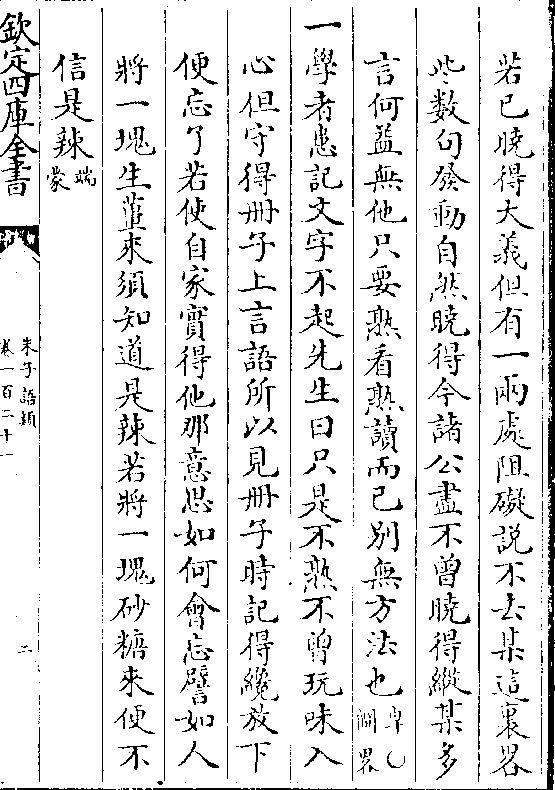 若已曉得大義但有一兩處阻礙說不去某這裏略
些數句發動自然曉得今諸公盡不曾曉得縱某多
言何益無他只要熟看熟讀而已別無方法也
一學者患記文字不起先生曰只是不熟不曾玩味入
心但守得冊子上言語所以見冊子時記得纔放下
便忘了若使自家實得他那意思如何會忘譬如人
將一塊生薑來須知道是辣若將一塊砂糖來便不
信是辣端蒙
欽定四庫全書
朱子語類
卷一百二十一
二